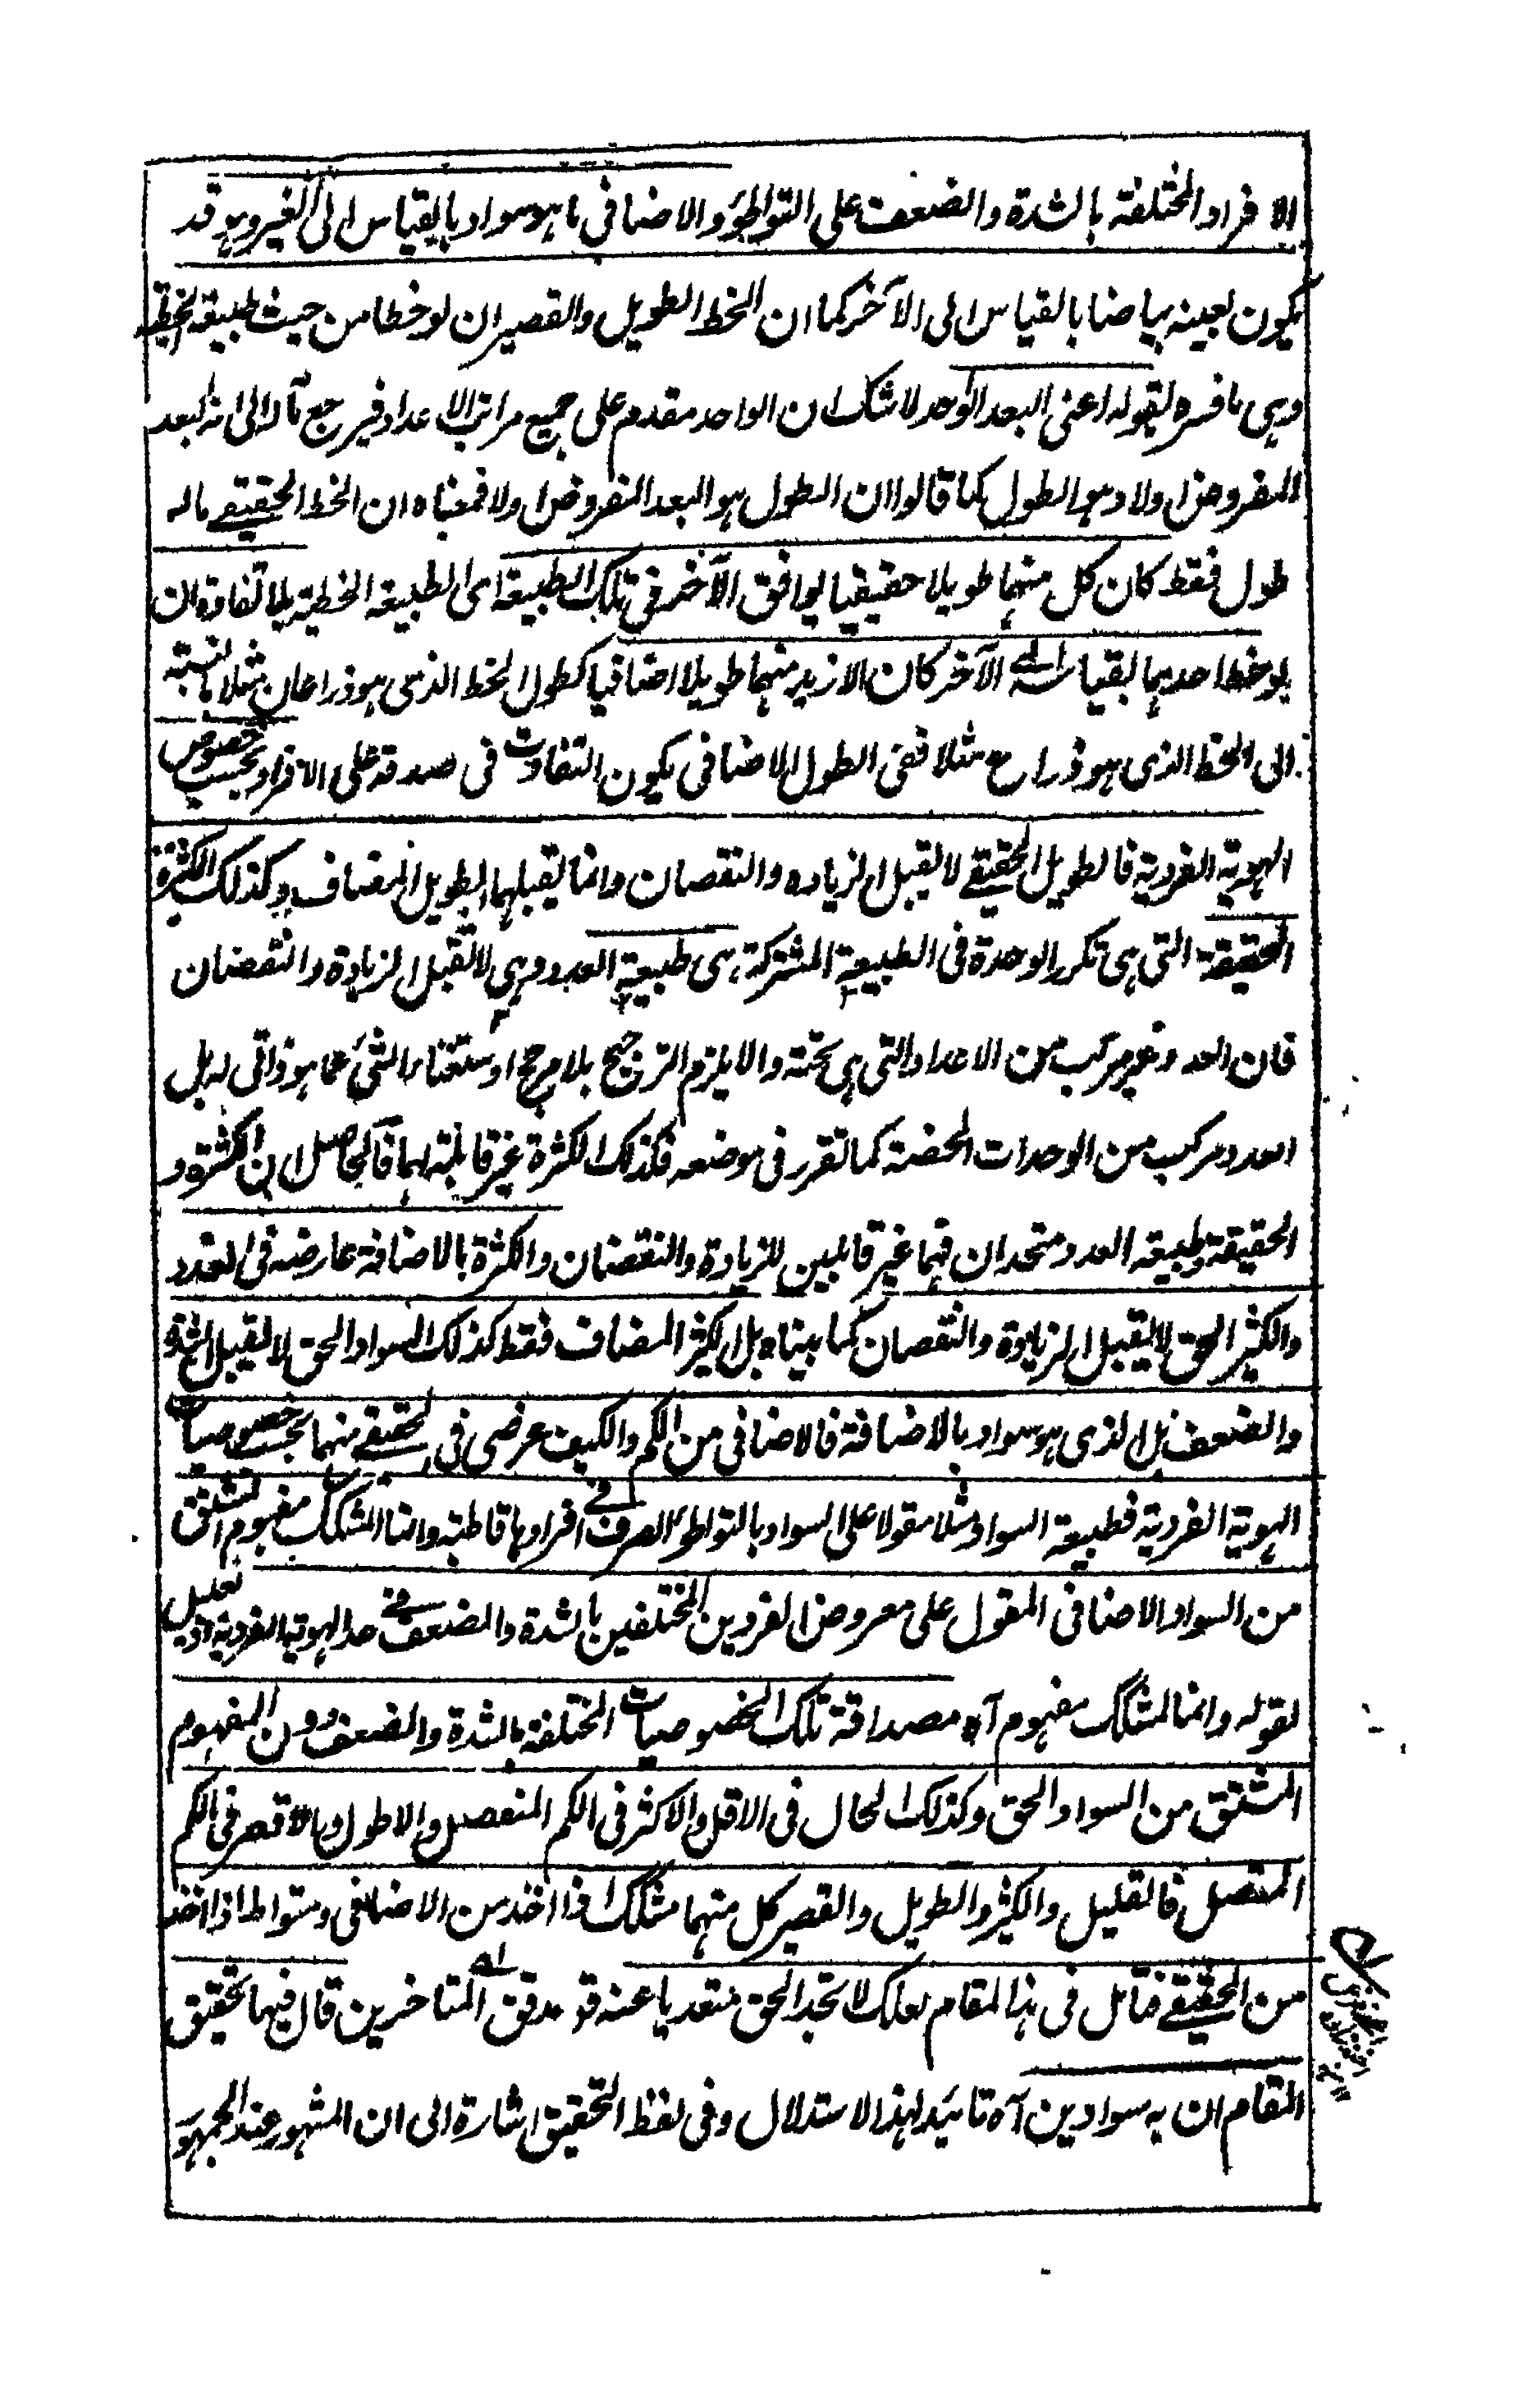 الافراد المختلفة بالشدة والضعف على التواطؤ والاضافى ما هو سواد بالقياس الى الغير وهو قد
يكون بعينه بياضا بالقياس الى الآخر كما ان الخط الطويل والقصير ان لوخظا من حيث طبيعة الخطية
وهى ما فسره بقوله اعنى البعد الاوحد لا شك ان الواحد مقدم على جميع مراتب الاعداد فيرجع مآله الى انه البعد
المفروض اولا وهو الطول كما قالوا ان الطول هو البعد المفروض اولا فمعناه ان الخط الحقيقے ماله
طول فقط كان كل منهما طويلا حقيقيا يوافق الآخر فى تلك الطبيعة اى الطبيعة الخطية بلا تفاوة ان
لوخظ احدهما بقياسه الى الآخر كان الازيد منهما طويلا اضافيا كطول الخط الذى هو ذراعان مثلا بالنسبة
الى الخط الذى هو ذراع مثلا ففى الطول الاضافى يكون التفاوت فى صدقه على الافراد بحسب خصوص
الهوية الفردية فالطويل الحقيقے لا يقبل الزيادة والنقصان وانما يقبلهما الطويل المضاف وكذلك الكثرة
الحقيقة التى هى تكرر الوحدة فى الطبيعة المشتركة هى طبيعة العدد وهى لا تقبل الزيادة والنقصان
فان العدد غير مركب من الاعداد التى هى تحته والا يلزم الترجيح بلا مرجح او ستغناء الشئ عما هو ذاتى له بل
العدد مركب من الوحدات المحضة كما تقرر فى موضعه فكذلك الكثرة غير قابلة لهما فالحاصل ان الكثرة و
الحقيقة وطبيعة العدد متحدان فهما غير قابلين للزيادة والنقصان والكثرة بالاضافة عارضه فى العدد
والكثير الحق لا يقبل الزيادة والنقصان كما بيناه بل الكثير المضاف فقط كذلك السواد الحق لا يقبل الشدة
والضعف بل الذى هو سواد بالاضافة فالاضافى من الكم والكيف عرضى فى الحقيقے منهما بحسب خصوصيات
الهوية الفردية فطبيعة السواد مثلا مقولا على السواد بالتواطؤ الصرف فے افرادها قاطبة وانما المشكك مفهوم المشتق
من السواد الاضافى المقول على معروض الفردين المختلفين بالشدة والضعف فے حد الهوية الفردية او تعليل
لقوله وانما المشكك مفهوم آه مصداقة تلك الخصوصيات المختلفة بالشدة والضعف دون المفهوم
المشتق من السواد الحق وكذلك الحال فى الاقل والاكثر فى الكم المنفصل والاطول والاقصر فى الكم
المتصل فالقليل والكثير والطويل والقصير كل منهما مشكك اذا اخذ من الاضافى ومتواط اذا اخذ
من الحقيقے فتامل فى هذا المقام لعلك لا تجد الحق متعديا عنه قو مدقق المتاخرين قال فيها تحقيق
المقام ان به سوادين آه تائيد لهذا الاستدلال وفى لفظ التحقيق اشارة الى ان المشهور عند الجمهور